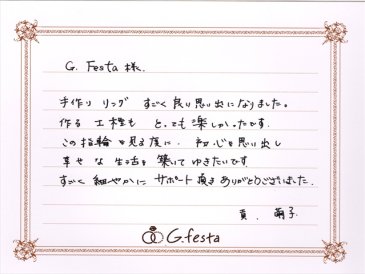 G. Festa 様.
手作り リング すごく 良い思い出になりました。
作る 工程も とっても 楽しかったです.
この指輪を見る度に. 初心を思い出し
幸せな生活を築いてゆきたいです
すごく 細やかに サポート頂き ありがとうございました.
真. 萌子.
G.festa